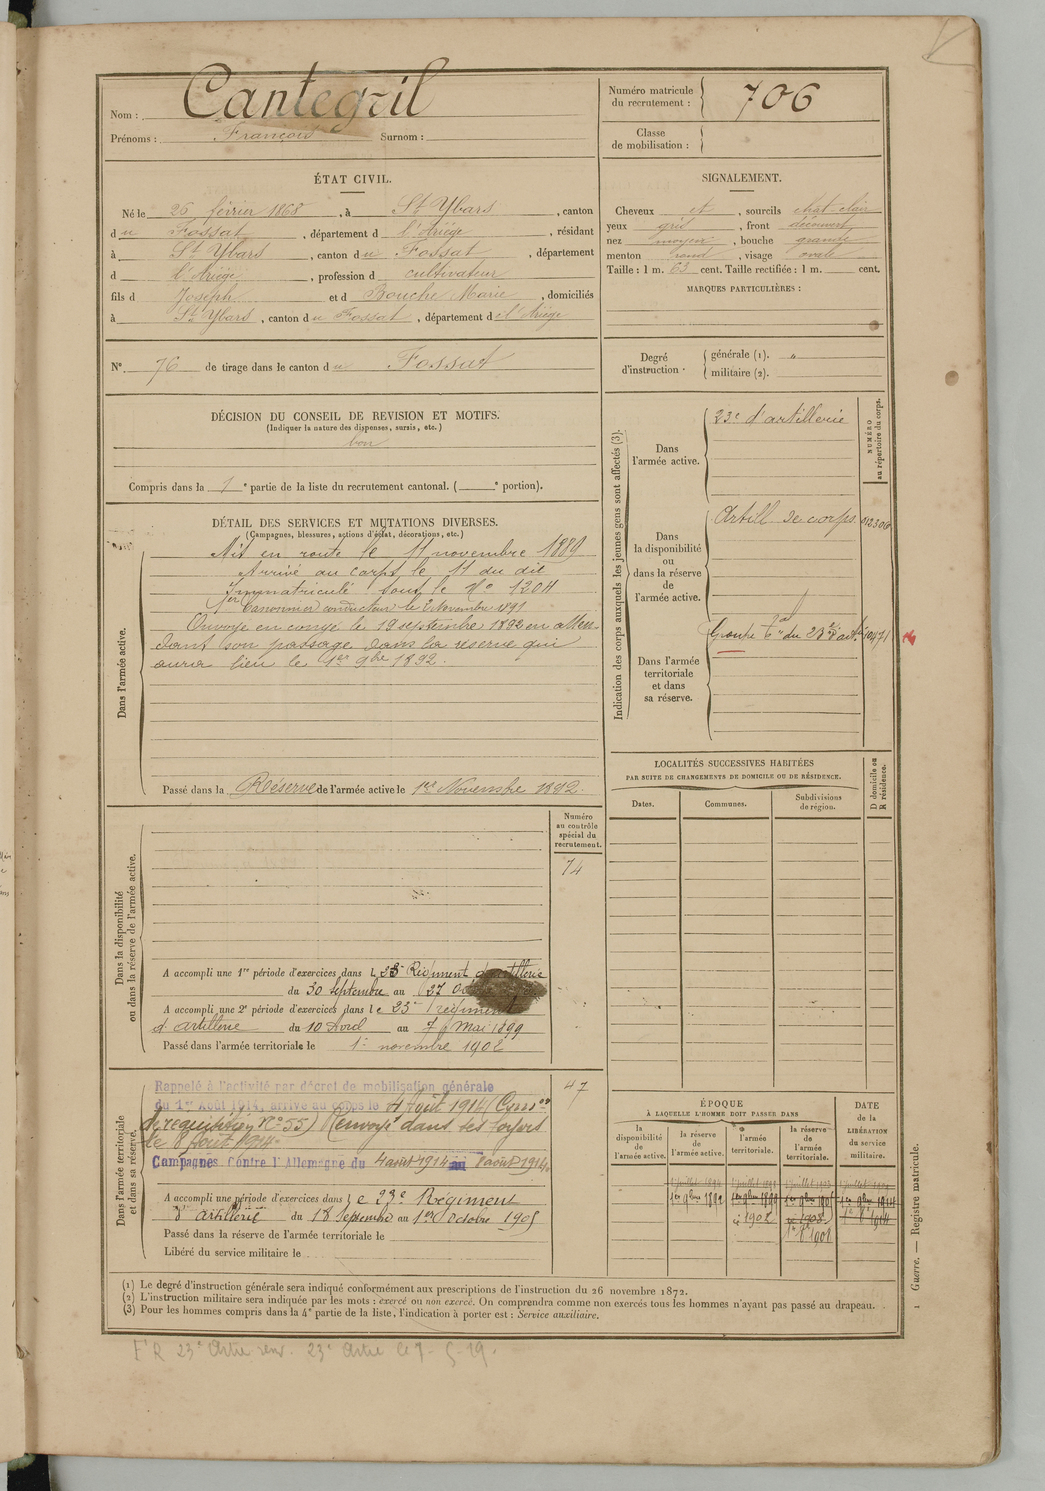 Nom : Cantegril
Prénoms : François Surnom :
Numéro matricule du recrutement : 706
Classe de mobilisation :
ÉTAT CIVIL.
Né le 26 février 1868, à St Ybars, canton
du Fossat, département d l'Ariège, résidant
à St Ybars, canton du Fossat, département
d l'Ariège, profession d cultivateur
fils d Joseph et d Bouche Marie, domiciliés
à St Ybars, canton du Fossat, département de l'Ariège
N° 76 de tirage dans le canton du Fossat
SIGNALEMENT.
Cheveux et, sourcils chat. clair
yeux gris, front découvert
nez moyen, bouche grande
menton rond, visage ovale
Taille : 1 m. 63 cent. Taille rectifiée : 1 m. cent.
MARQUES PARTICULIÈRES :
Degré d'instruction : générale (1). "
militaire (2).
DÉCISION DU CONSEIL DE REVISION ET MOTIFS.
(Indiquer la nature des dispenses, sursis, etc.)
bon
Compris dans la 1e partie de la liste du recrutement cantonal. ( e portion).
Indication des corps auxquels les jeunes gens sont affectés (3).
NUMÉRO au répertoire du corps.
Dans l'armée active.
23e d'artillerie
Dans la disponibilité ou dans la réserve de l'armée active.
Artill de corps
Dans l'armée territoriale et dans sa réserve.
Groupe du 23e
DÉTAIL DES SERVICES ET MUTATIONS DIVERSES.
(Campagnes, blessures, actions d'éclat, décorations, etc.)
Dans l'armée active.
Mis en route le 11 novembre 1889
Arrivé au corps le 11 du dit
Immatriculé sous le N° 1204
1er Canonnier conducteur le 2 Novembre 1891
Envoyé en congé le 19 septembre 1892 en atten
dant son passage dans la réserve qui
aura lieu le 1er 9bre 1892.
Passé dans la Réserve de l'armée active le 1er Novembre 1892.
LOCALITÉS SUCCESSIVES HABITÉES
PAR SUITE DE CHANGEMENTS DE DOMICILE OU DE RÉSIDENCE.
D domicile ou R résidence.
Dates.
Communes.
Subdivisions de région.
Numéro au contrôle spécial du recrutement.
74
Dans la disponibilité ou dans la réserve de l'armée active.
A accompli une 1re période d'exercices dans le 23e Régiment d'artillerie
du 30 Septembre au 27
A accompli une 2e période d'exercices dans le 23e régiment
d'artillerie du 10 Avril au 7 Mai 1899
Passé dans l'armée territoriale le 1er novembre 1902
47
Dans l'armée territoriale et dans sa réserve.
Rappelé à l'activité par décret de mobilisation générale
du 1er Août 1914, arrivé au corps le 4 Août 1914 (Comon
de réquisition N° 55) Renvoyé dans ses foyers
le 8 août 1914.
Campagnes Contre l'Allemagne du 4 août 1914 au 8 août 1914
A accompli une période d'exercices dans le 23e Régiment
d'artillerie du 18 Septembre au 1er Octobre 1905
Passé dans la réserve de l'armée territoriale le
Libéré du service militaire le
ÉPOQUE
À LAQUELLE L'HOMME DOIT PASSER DANS
la disponibilité de l'armée active.
la réserve de l'armée active.
l'armée territoriale.
la réserve de l'armée territoriale.
DATE de la LIBÉRATION du service militaire.
1er 9bre 1892
1902
1908
(1) Le degré d'instruction générale sera indiqué conformément aux prescriptions de l'instruction du 26 novembre 1872.
(2) L'instruction militaire sera indiquée par les mots : exercé ou non exercé. On comprendra comme non exercés tous les hommes n'ayant pas passé au drapeau.
(3) Pour les hommes compris dans la 4e partie de la liste, l'indication à porter est : Service auxiliaire.
Guerre. — Registre matricule.